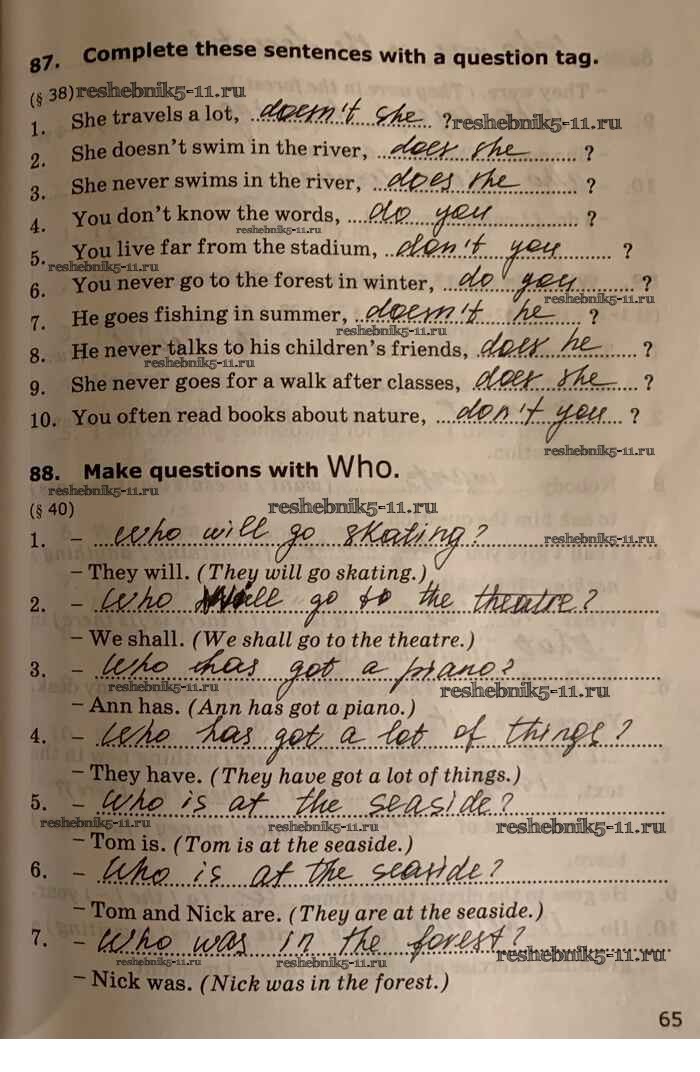 87. Complete these sentences with a question tag.
(§ 38) reshebnik5-11.ru
1. She travels a lot, doesn't she ? reshebnik5-11.ru
2. She doesn't swim in the river, does she ?
3. She never swims in the river, does she ?
4. You don't know the words, do you ?
reshebnik5-11.ru
5. You live far from the stadium, don't you ?
reshebnik5-11.ru
6. You never go to the forest in winter, do you ?
reshebnik5-11.ru
7. He goes fishing in summer, doesn't he ?
reshebnik5-11.ru
8. He never talks to his children's friends, does he ?
reshebnik5-11.ru
9. She never goes for a walk after classes, does she ?
10. You often read books about nature, don't you ?
reshebnik5-11.ru
88. Make questions with Who.
reshebnik5-11.ru
(§ 40) reshebnik5-11.ru
1. – Who will go skating? reshebnik5-11.ru
– They will. (They will go skating.)
2. – Who will go to the theatre?
– We shall. (We shall go to the theatre.)
3. – Who has got a piano?
reshebnik5-11.ru reshebnik5-11.ru
– Ann has. (Ann has got a piano.)
4. – Who has got a lot of things?
– They have. (They have got a lot of things.)
5. – Who is at the seaside?
reshebnik5-11.ru reshebnik5-11.ru reshebnik5-11.ru
– Tom is. (Tom is at the seaside.)
6. – Who is at the seaside?
– Tom and Nick are. (They are at the seaside.)
7. – Who was in the forest?
reshebnik5-11.ru reshebnik5-11.ru reshebnik5-11.ru
– Nick was. (Nick was in the forest.)
65